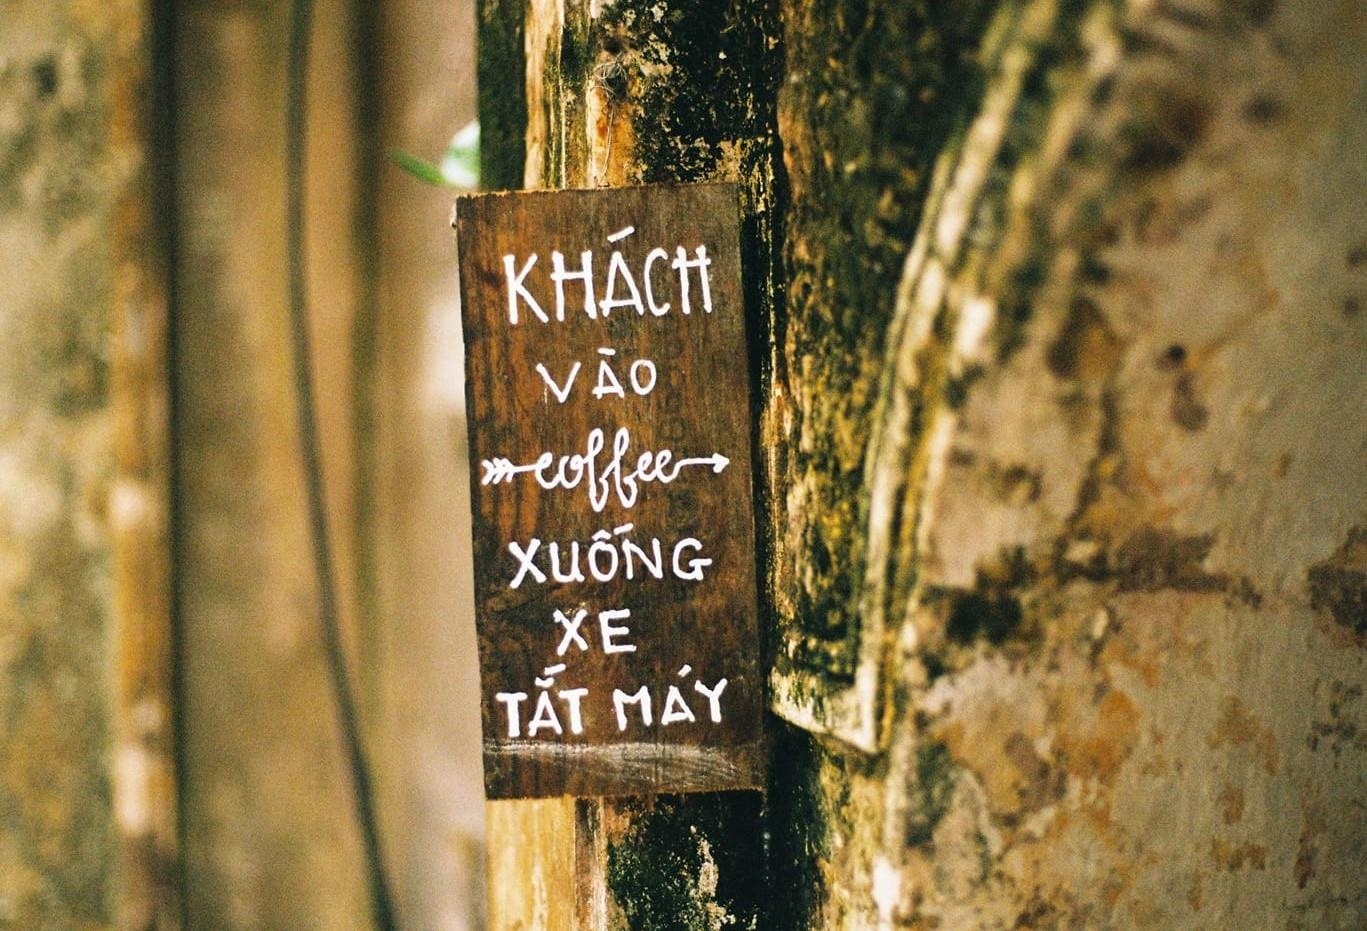 KHÁCH
VÀO
coffee
XUỐNG
XE
TẮT MÁY